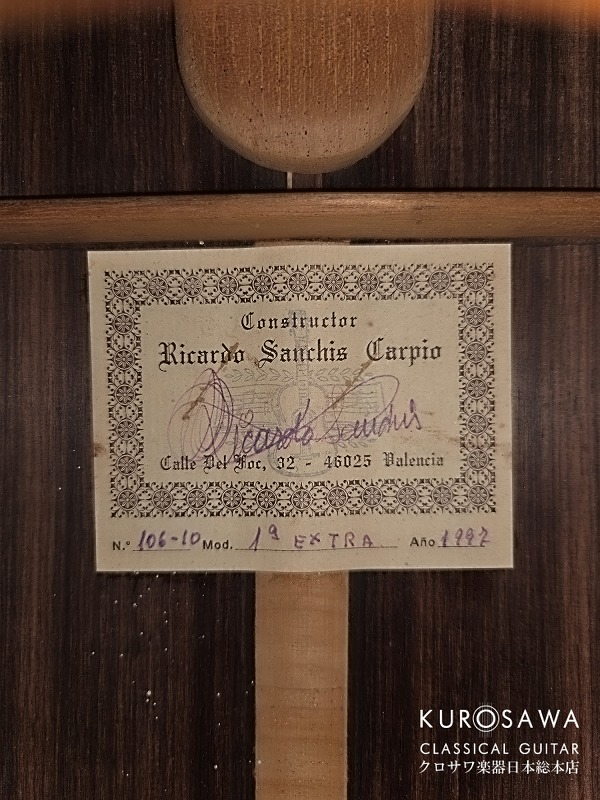 Constructor
Ricardo Sanchis Carpio
Ricardo Sanchis
Calle Del Foc, 32 - 46025 Valencia
N.° 106-10 Mod. 1ª EXTRA Año 1997
KUROSAWA
CLASSICAL GUITAR
クロサワ楽器日本総本店